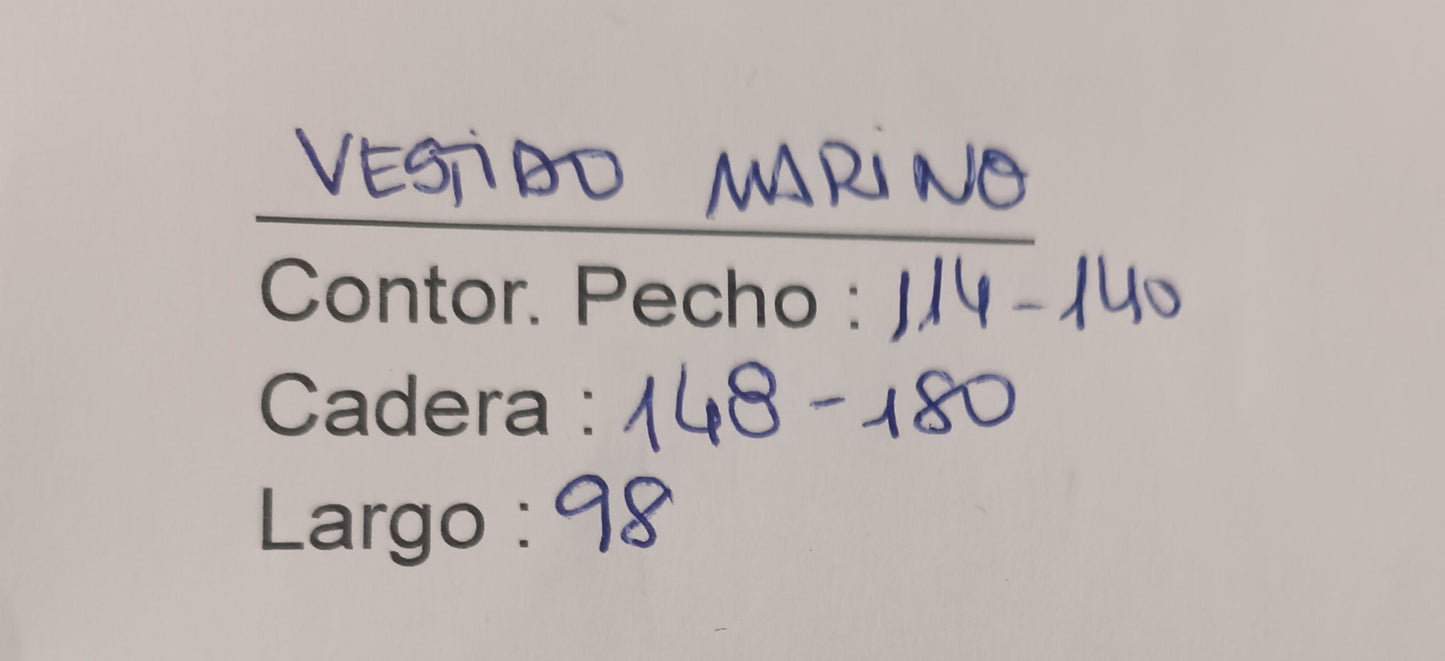 VESTIDO MARINO
Contor. Pecho : 114-140
Cadera : 148-180
Largo : 98